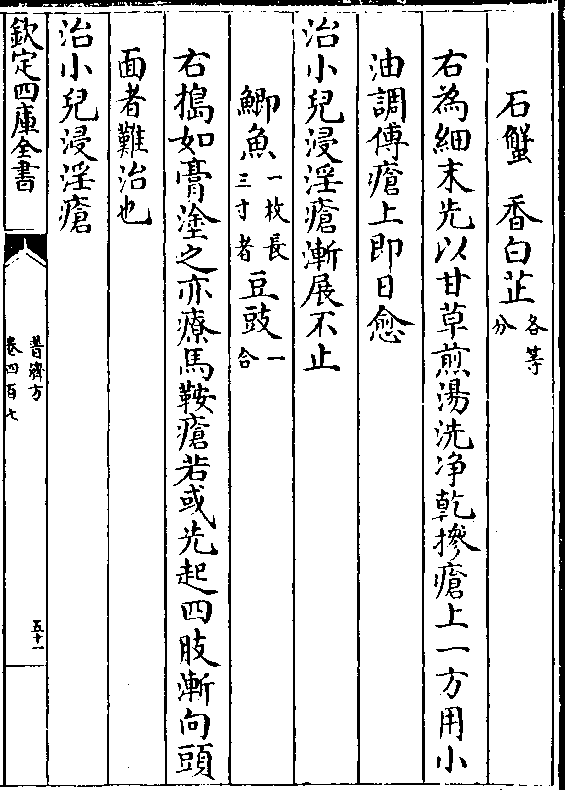 石蟹　香白芷各等分
右為細末先以甘草煎湯洗净乾摻瘡上一方用小
油調傅瘡上即日愈
治小兒浸淫瘡漸展不止
鯽魚一枚長三寸者　豆豉一合
右搗如膏塗之亦療馬鞍瘡若或先起四肢漸向頭
面者難治也
治小兒浸淫瘡
欽定四庫全書
普濟方
卷四百七
五十一